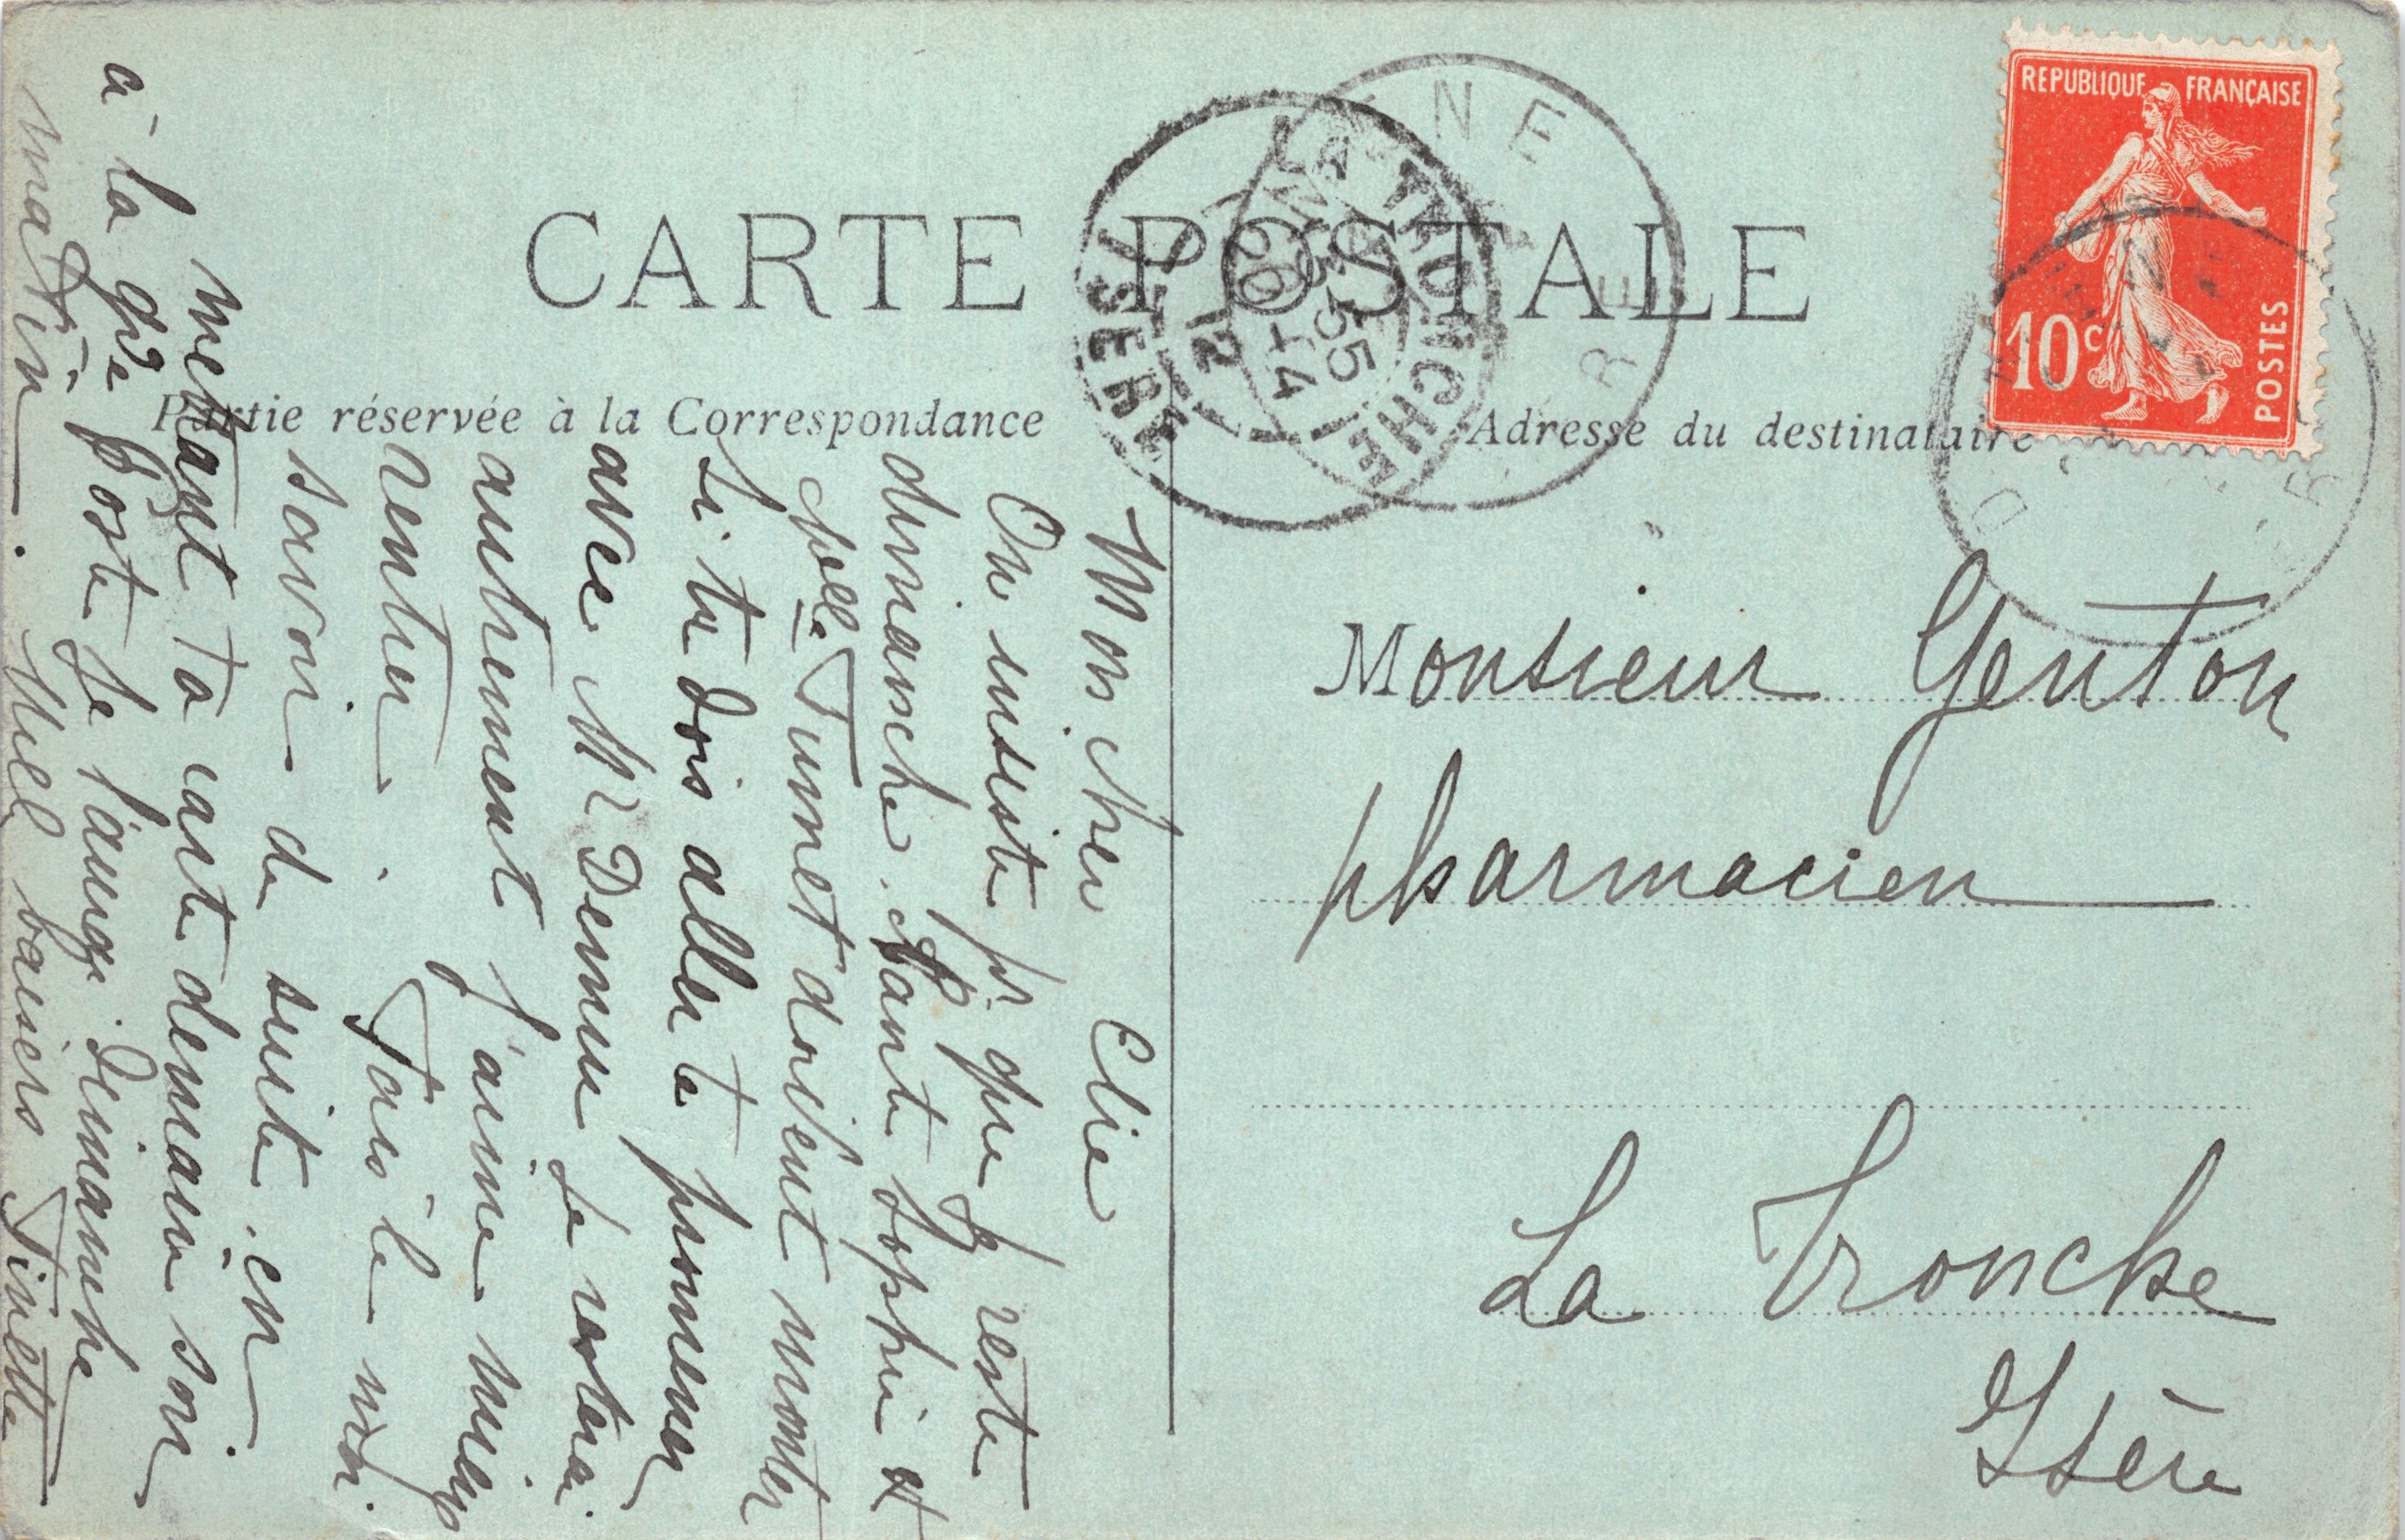 CARTE POSTALE
Partie réservée à la Correspondance
Adresse du destinataire
REPUBLIQUE FRANÇAISE
10c
POSTES
LA TRONCHE
ISERE
12
Monsieur Genton
pharmacien
La Tronche
Isère
Mon cher Elie
On insiste pr que je reste
dimanche. Tante Sophie et
Melle Tumet doivent monter
Si tu dois aller te promener
avec Mr Demim je resterai.
autrement j'aime mieux
rentrer. Fais le moi
savoir de suite. en
mettant ta carte demain soir
à la gde poste je l'aurai Dimanche
matin. Mille baisers Finette